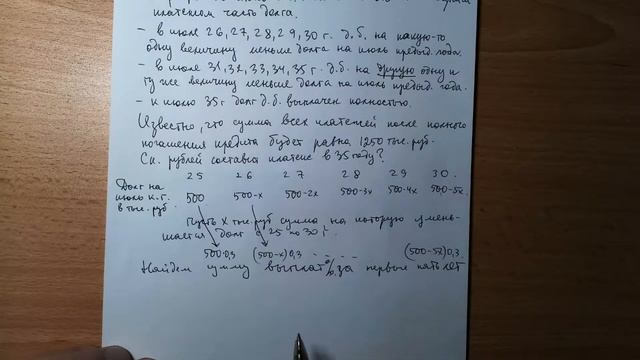 платежом часть долга.
– в июле 26, 27, 28, 29, 30 г. д.б. на какую-то
одну величину меньше долга на июль предыд. года.
– в июле 31, 32, 33, 34, 35 г. д.б. на другую одну и
ту же величину меньше долга на июль предыд. года.
– к июлю 35 г. долг д.б. выплачен полностью.
Известно, что сумма всех платежей после полного
погашения кредита будет равна 1250 тыс. руб.
Ск. рублей составит платеж в 35 году?
25 26 27 28 29 30.
Долг на
июль к.г. 500 500-х 500-2х 500-3х 500-4х 500-5х
в тыс. руб
Пусть х тыс. руб сумма на которую умень-
шается долг с 25 по 30 г.
500·0,3 (500-х)0,3 (500-5х)0,3.
Найдем сумму выплат % за первые пять лет